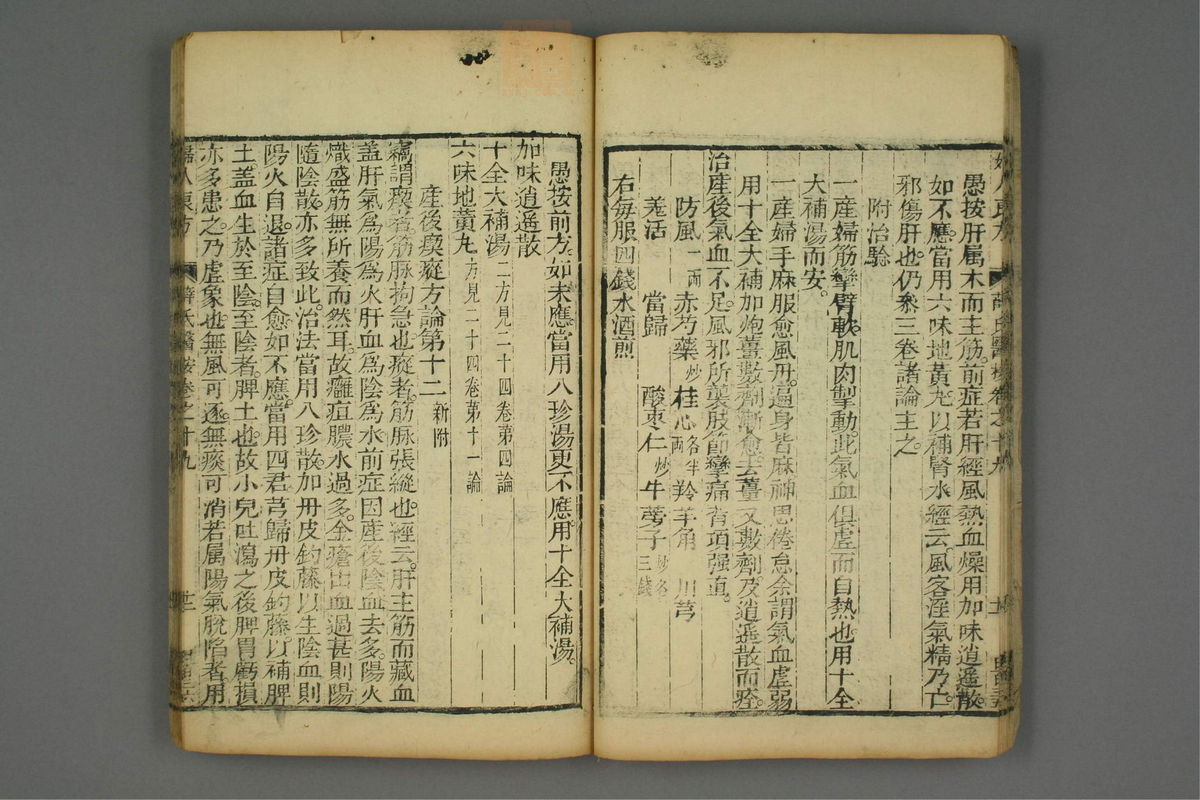 愚按肝属木而主筋前症若肝經風熱血燥用加味逍遙散
如不應當用六味地黃九以補腎水經云風客淫氣精乃亡
邪傷肝也仍叅三卷諸論主之
附治驗
一產婦筋攣臂軟肌肉掣動此氣血俱虛而自熱也用十全
大補湯而安
一產婦手麻服愈風丹遍身皆麻神思倦怠余謂氣血虛弱
用十全大補加炮薑數劑漸愈去薑又數劑及逍遙散而痊
治產後氣血不足風邪所襲肢節攣痛背項强直
防風一兩 赤芍藥炒 桂心各半兩 羚羊角 川芎
羗活 當歸 酸枣仁炒 牛蒡子炒各三錢
右每服四錢水酒煎
愚按前方如未應當用八珍湯更不應用十全大補湯
加味逍遙散
十全大補湯二方見二十四卷第四論
六味地黃九方見二十四卷第十一論
產後瘈瘲方論第十二新附
竊謂瘈者筋脉拘急也瘲者筋脉張縱也經云肝主筋而藏血
盖肝氣爲陽爲火肝血爲陰爲水前症因產後陰血去多陽火
熾盛筋無所養而然耳故癰疽膿水過多金瘡出血過甚則陽
隨陰散亦多致此治法當用八珍散加丹皮鈎藤以生陰血則
陽火自退諸症自愈如不應當用四君芎歸丹皮鈎藤以補脾
土盖血生於至陰至陰者脾土也故小兒吐瀉之後脾胃虧損
亦多患之乃虛象也無風可逐無痰可消若属陽氣脫陷者用
婦人良方 薛氏醫按卷之十九